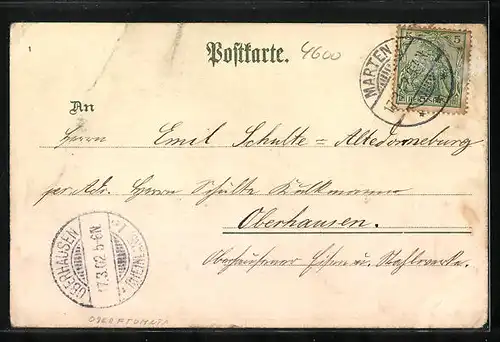 Postkarte.
4600
5 5
MARTEN
An
Herrn Emil Schulte = Altedorneburg
per Adr. Herrn Schulte Kulkmann
Oberhausen.
Oberhausener Eisen u. Stahlwerke.
OBERHAUSEN
7.3.02 5-6N.